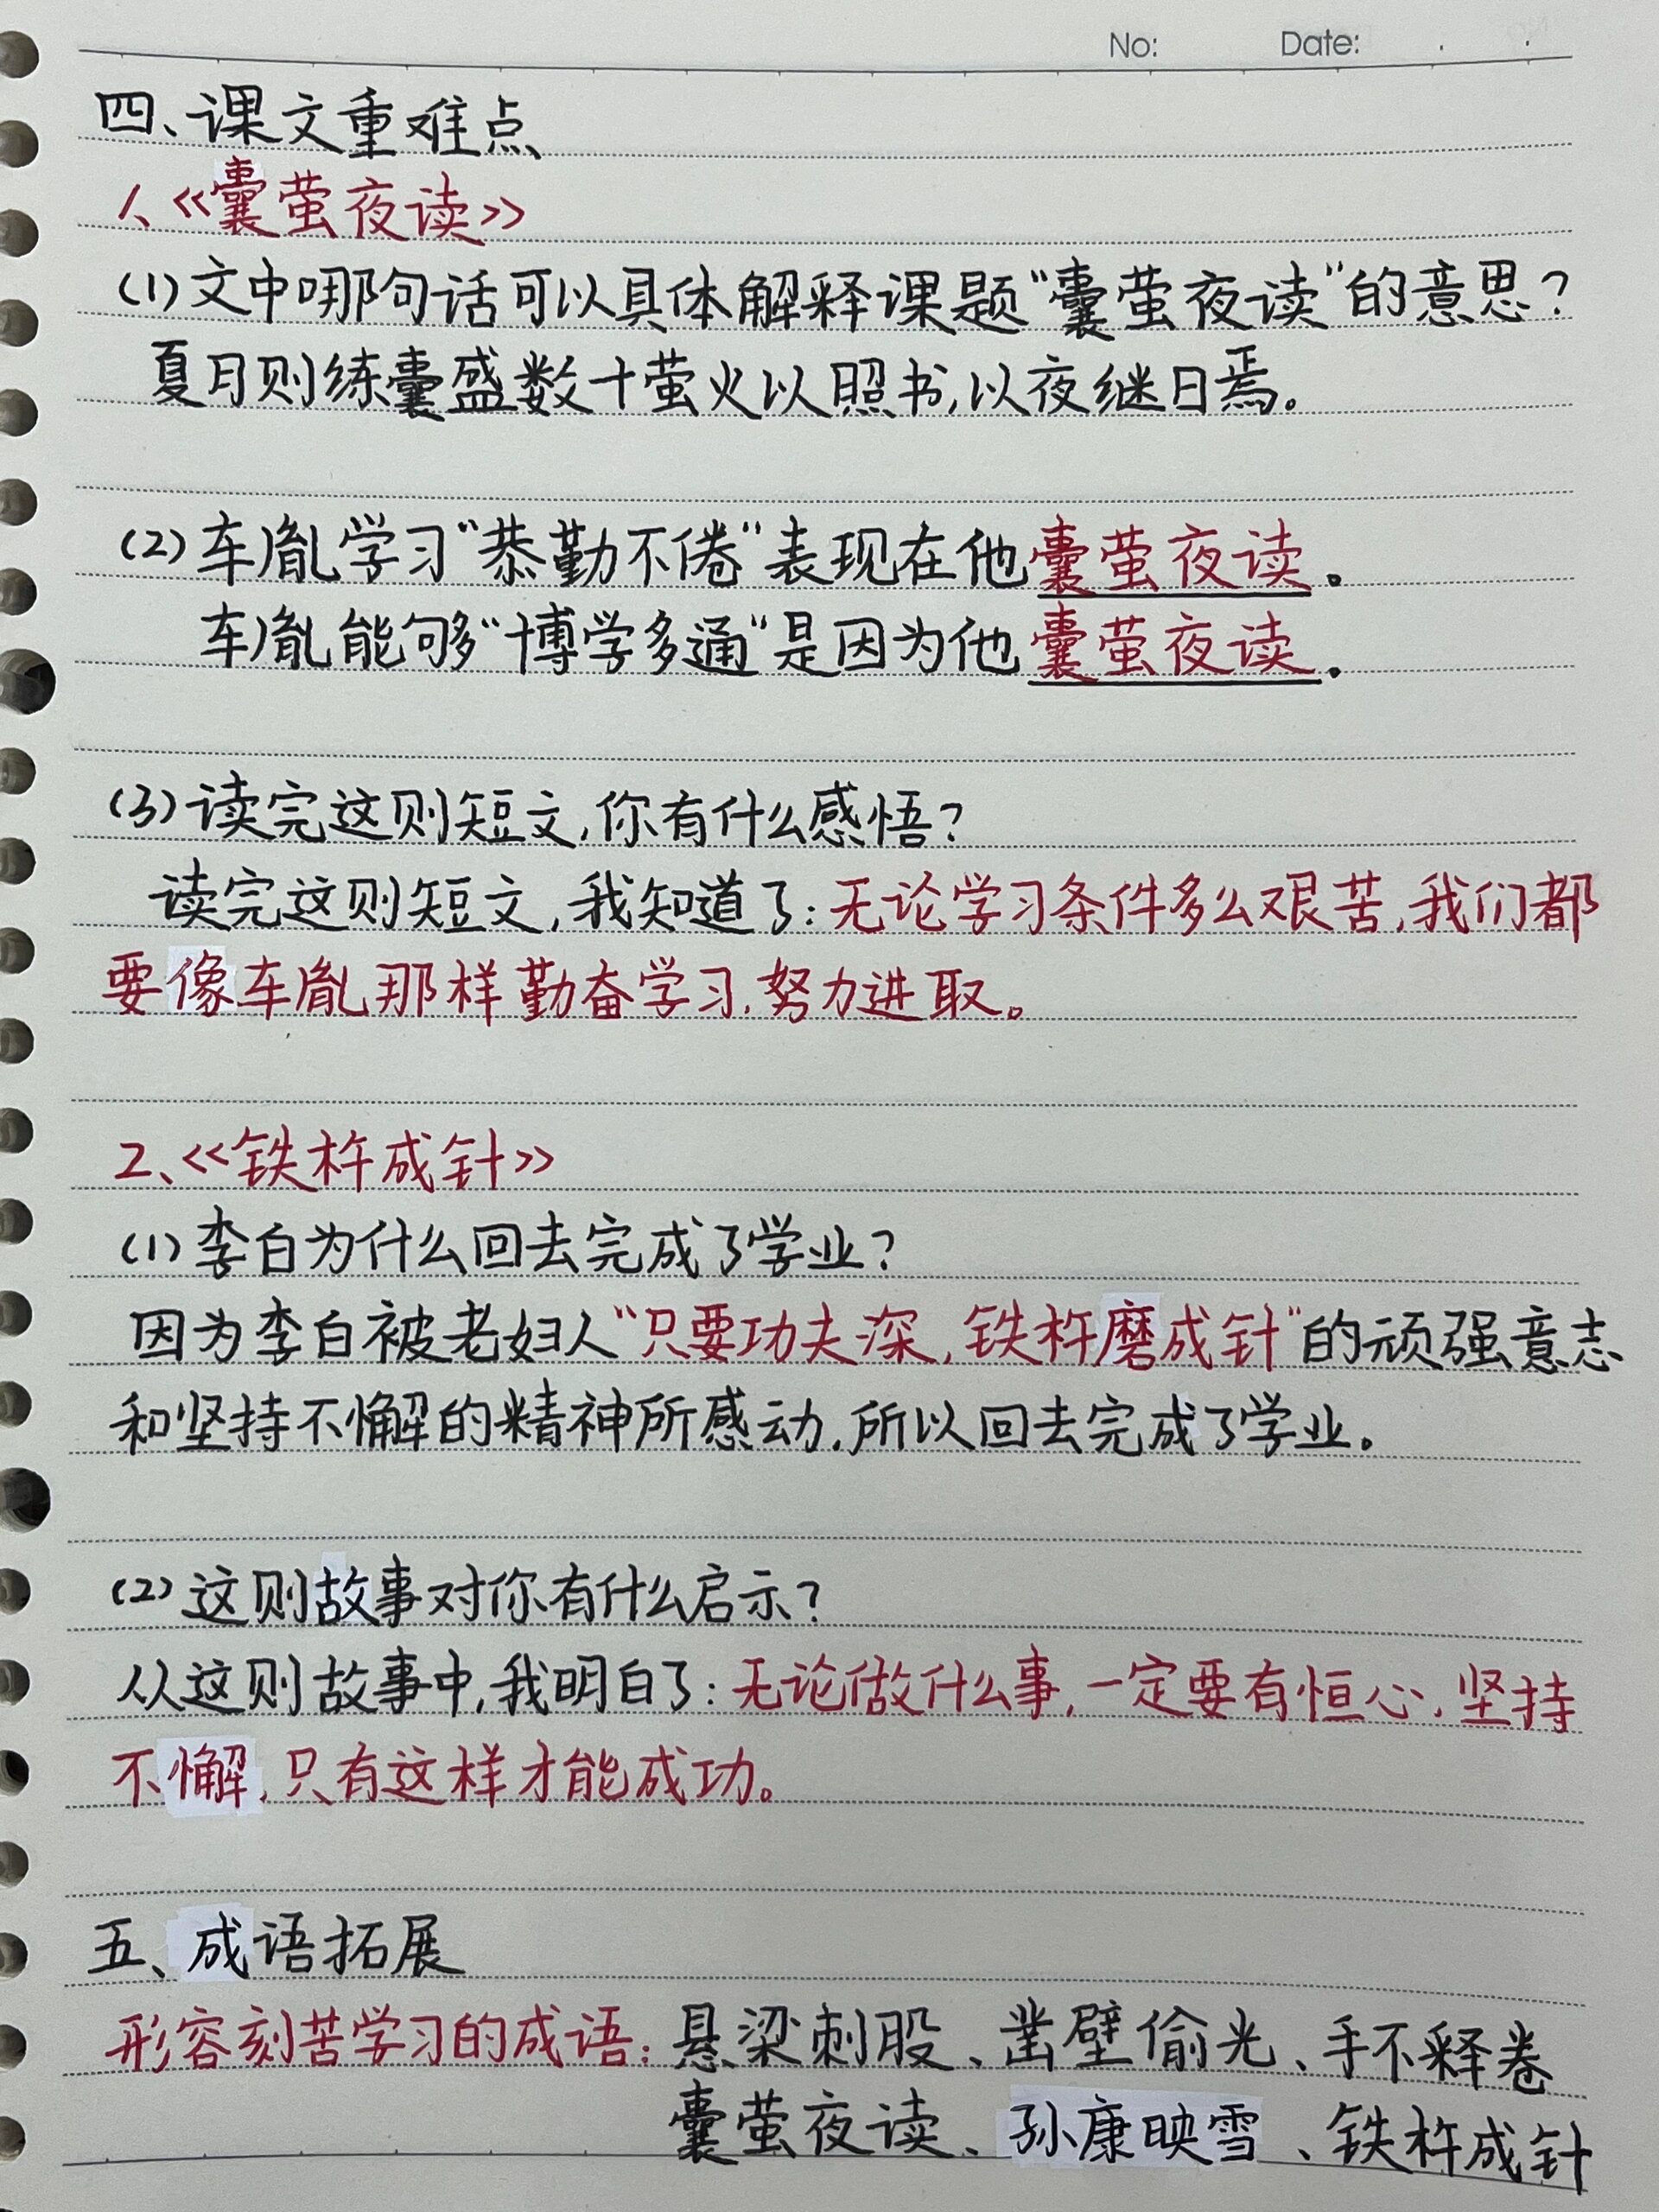 No: Date:
四、课文重难点
1、《囊萤夜读》
(1)文中哪句话可以具体解释课题“囊萤夜读”的意思?
夏月则练囊盛数十萤火以照书,以夜继日焉。
(2)车胤学习“恭勤不倦”表现在他囊萤夜读。
车胤能够多“博学多通”是因为他囊萤夜读。
(3)读完这则短文,你有什么感悟?
读完这则短文,我知道了:无论学习条件多么艰苦,我们都
要像车胤那样勤奋学习,努力进取。
2、《铁杵成针》
(1)李白为什么回去完成了学业?
因为李白被老妇人“只要功夫深,铁杵磨成针”的顽强意志
和坚持不懈的精神所感动,所以回去完成了学业。
(2)这则故事对你有什么启示?
从这则故事中,我明白了:无论做什么事,一定要有恒心,坚持
不懈,只有这样才能成功。
五、成语拓展
形容刻苦学习的成语:悬梁刺股、凿壁偷光、手不释卷
囊萤夜读、孙康映雪、铁杵成针